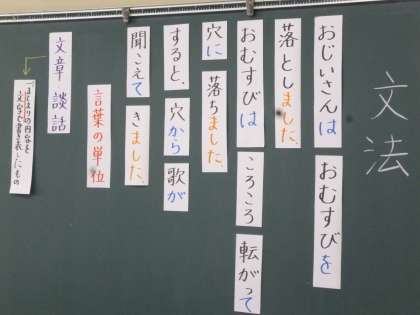 文法
おじいさんは おむすびを
落としました。
おむすびは ころころ 転がって
穴に 落ちました。
すると、穴から 歌が
聞こえて きました。
言葉の単位
文章 談話
一まとまりの内容を
文字で書き表したもの